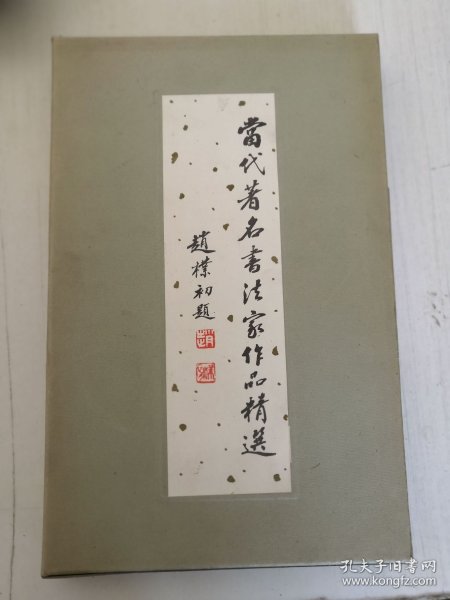 當代著名書法家作品精選
趙樸初題
孔夫子旧书网
www.kongfz.com